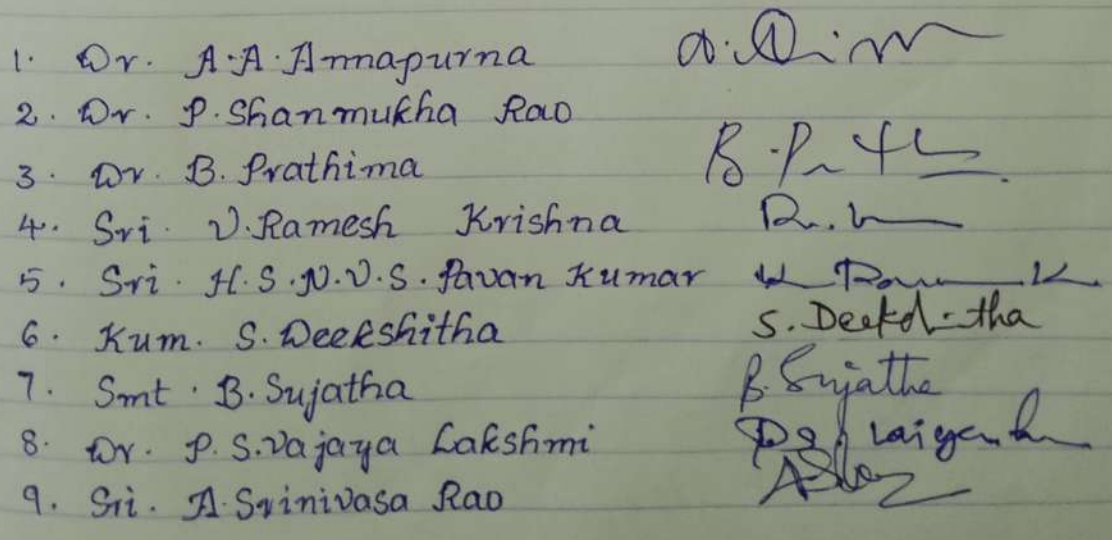 1. Dr. A.A. Annapurna
2. Dr. P. Shanmukha Rao
3. Dr. B. Prathima
4. Sri. V. Ramesh Krishna
5. Sri. H.S.N.V.S. Pavan Kumar
6. Kum. S. Deekshitha S. Deekshitha
7. Smt. B. Sujatha B. Sujatha
8. Dr. P.S. Vajaya Lakshmi
9. Sri. A. Srinivasa Rao